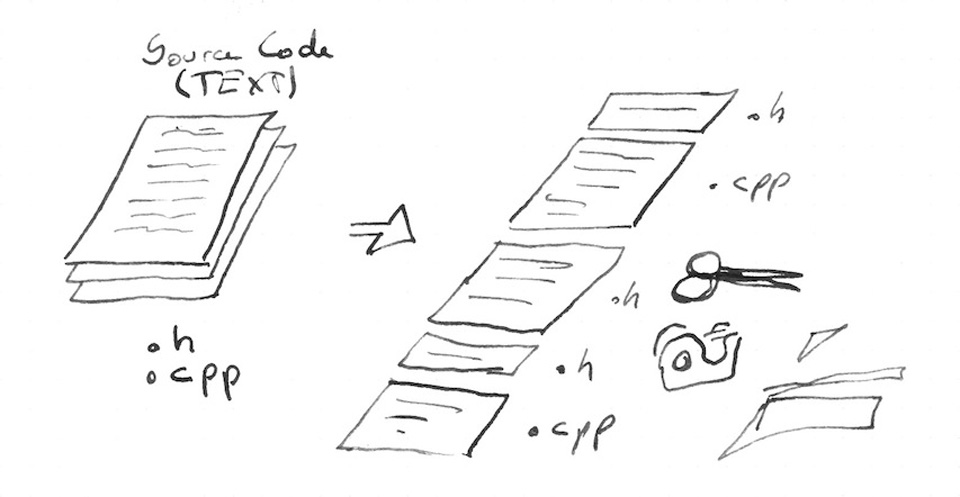 Source Code
(TEXT)
.h
.cpp
.h
.cpp
.h
.h
.cpp